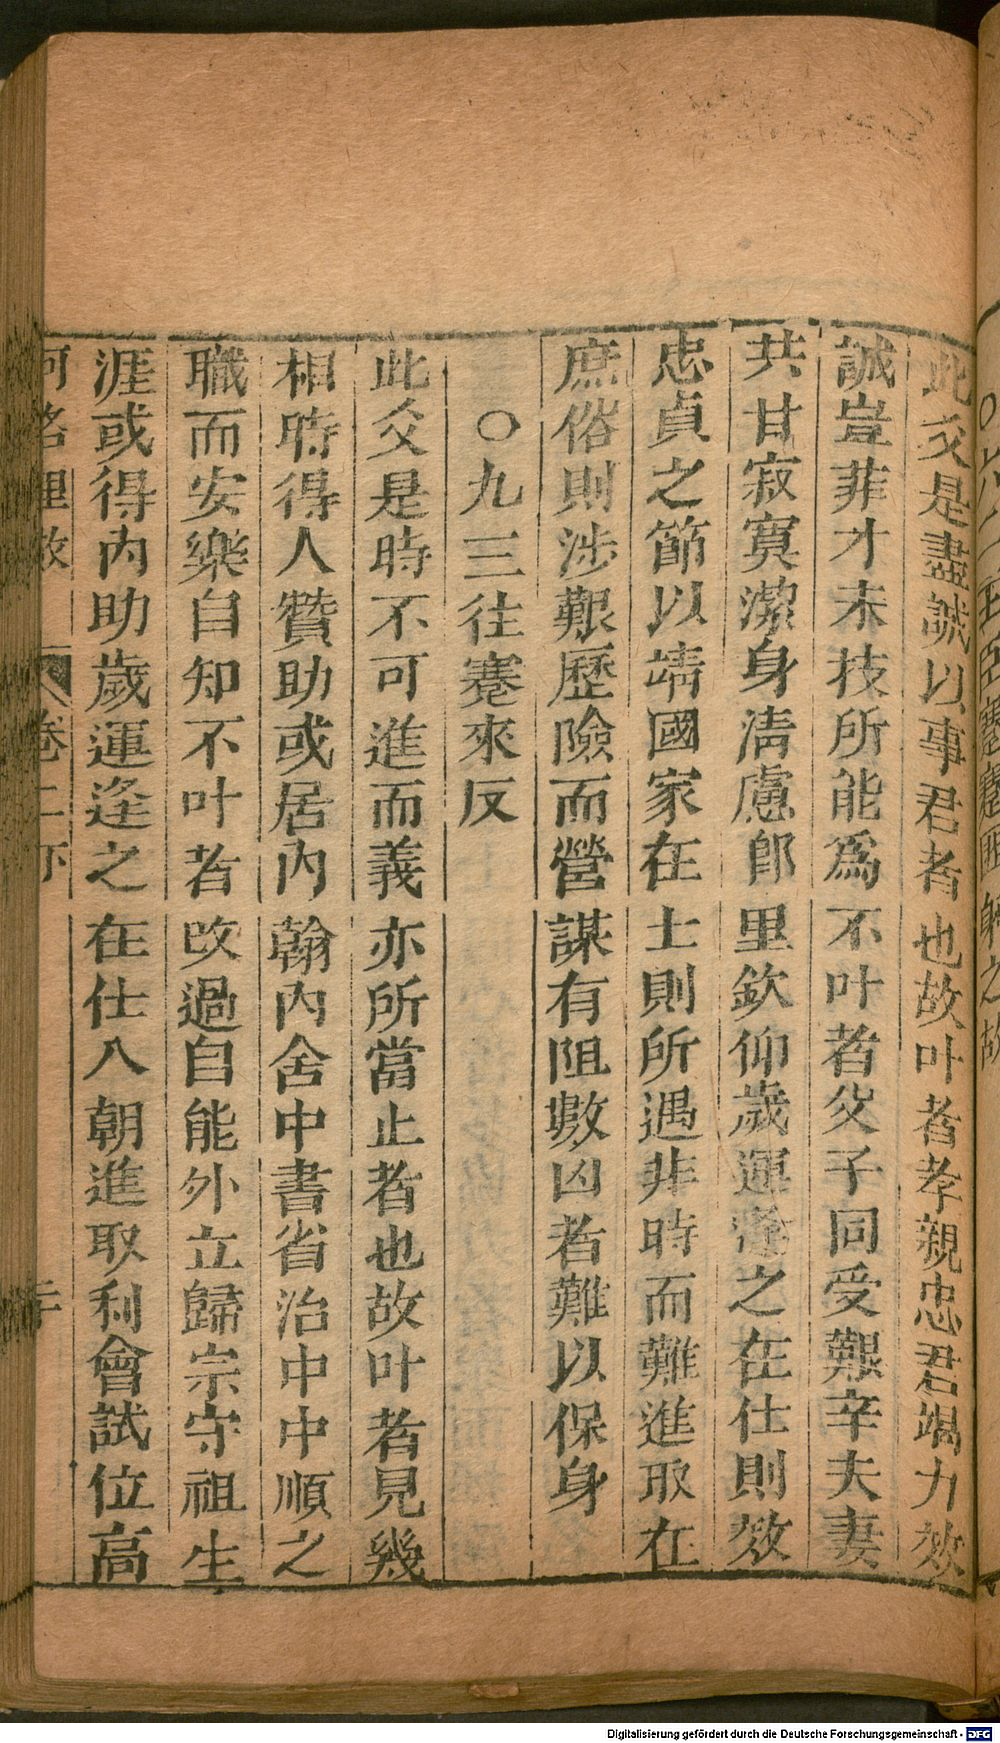 〇六二王臣蹇蹇匪躬之故
此爻是盡誠以事君者也故叶者孝親忠君竭力效
誠豈菲才未技所能爲不叶者父子同受艱辛夫妻
共甘寂寞潔身淸慮郎里欽仰歲運逢之在仕則效
忠貞之節以靖國家在士則所遇非時而難進取在
庶俗則涉艱歷險而營謀有阻數凶者難以保身
〇九三往蹇來反
此爻是時不可進而義亦所當止者也故叶者見幾
相時得人贊助或居內翰內舍中書省治中中順之
職而安樂自知不叶者改過自能外立歸宗守祖生
涯或得內助歲運逢之在仕入朝進取利會試位高
河洛理數 卷二下
Digitalisierung gefördert durch die Deutsche Forschungsgemeinschaft - DFG